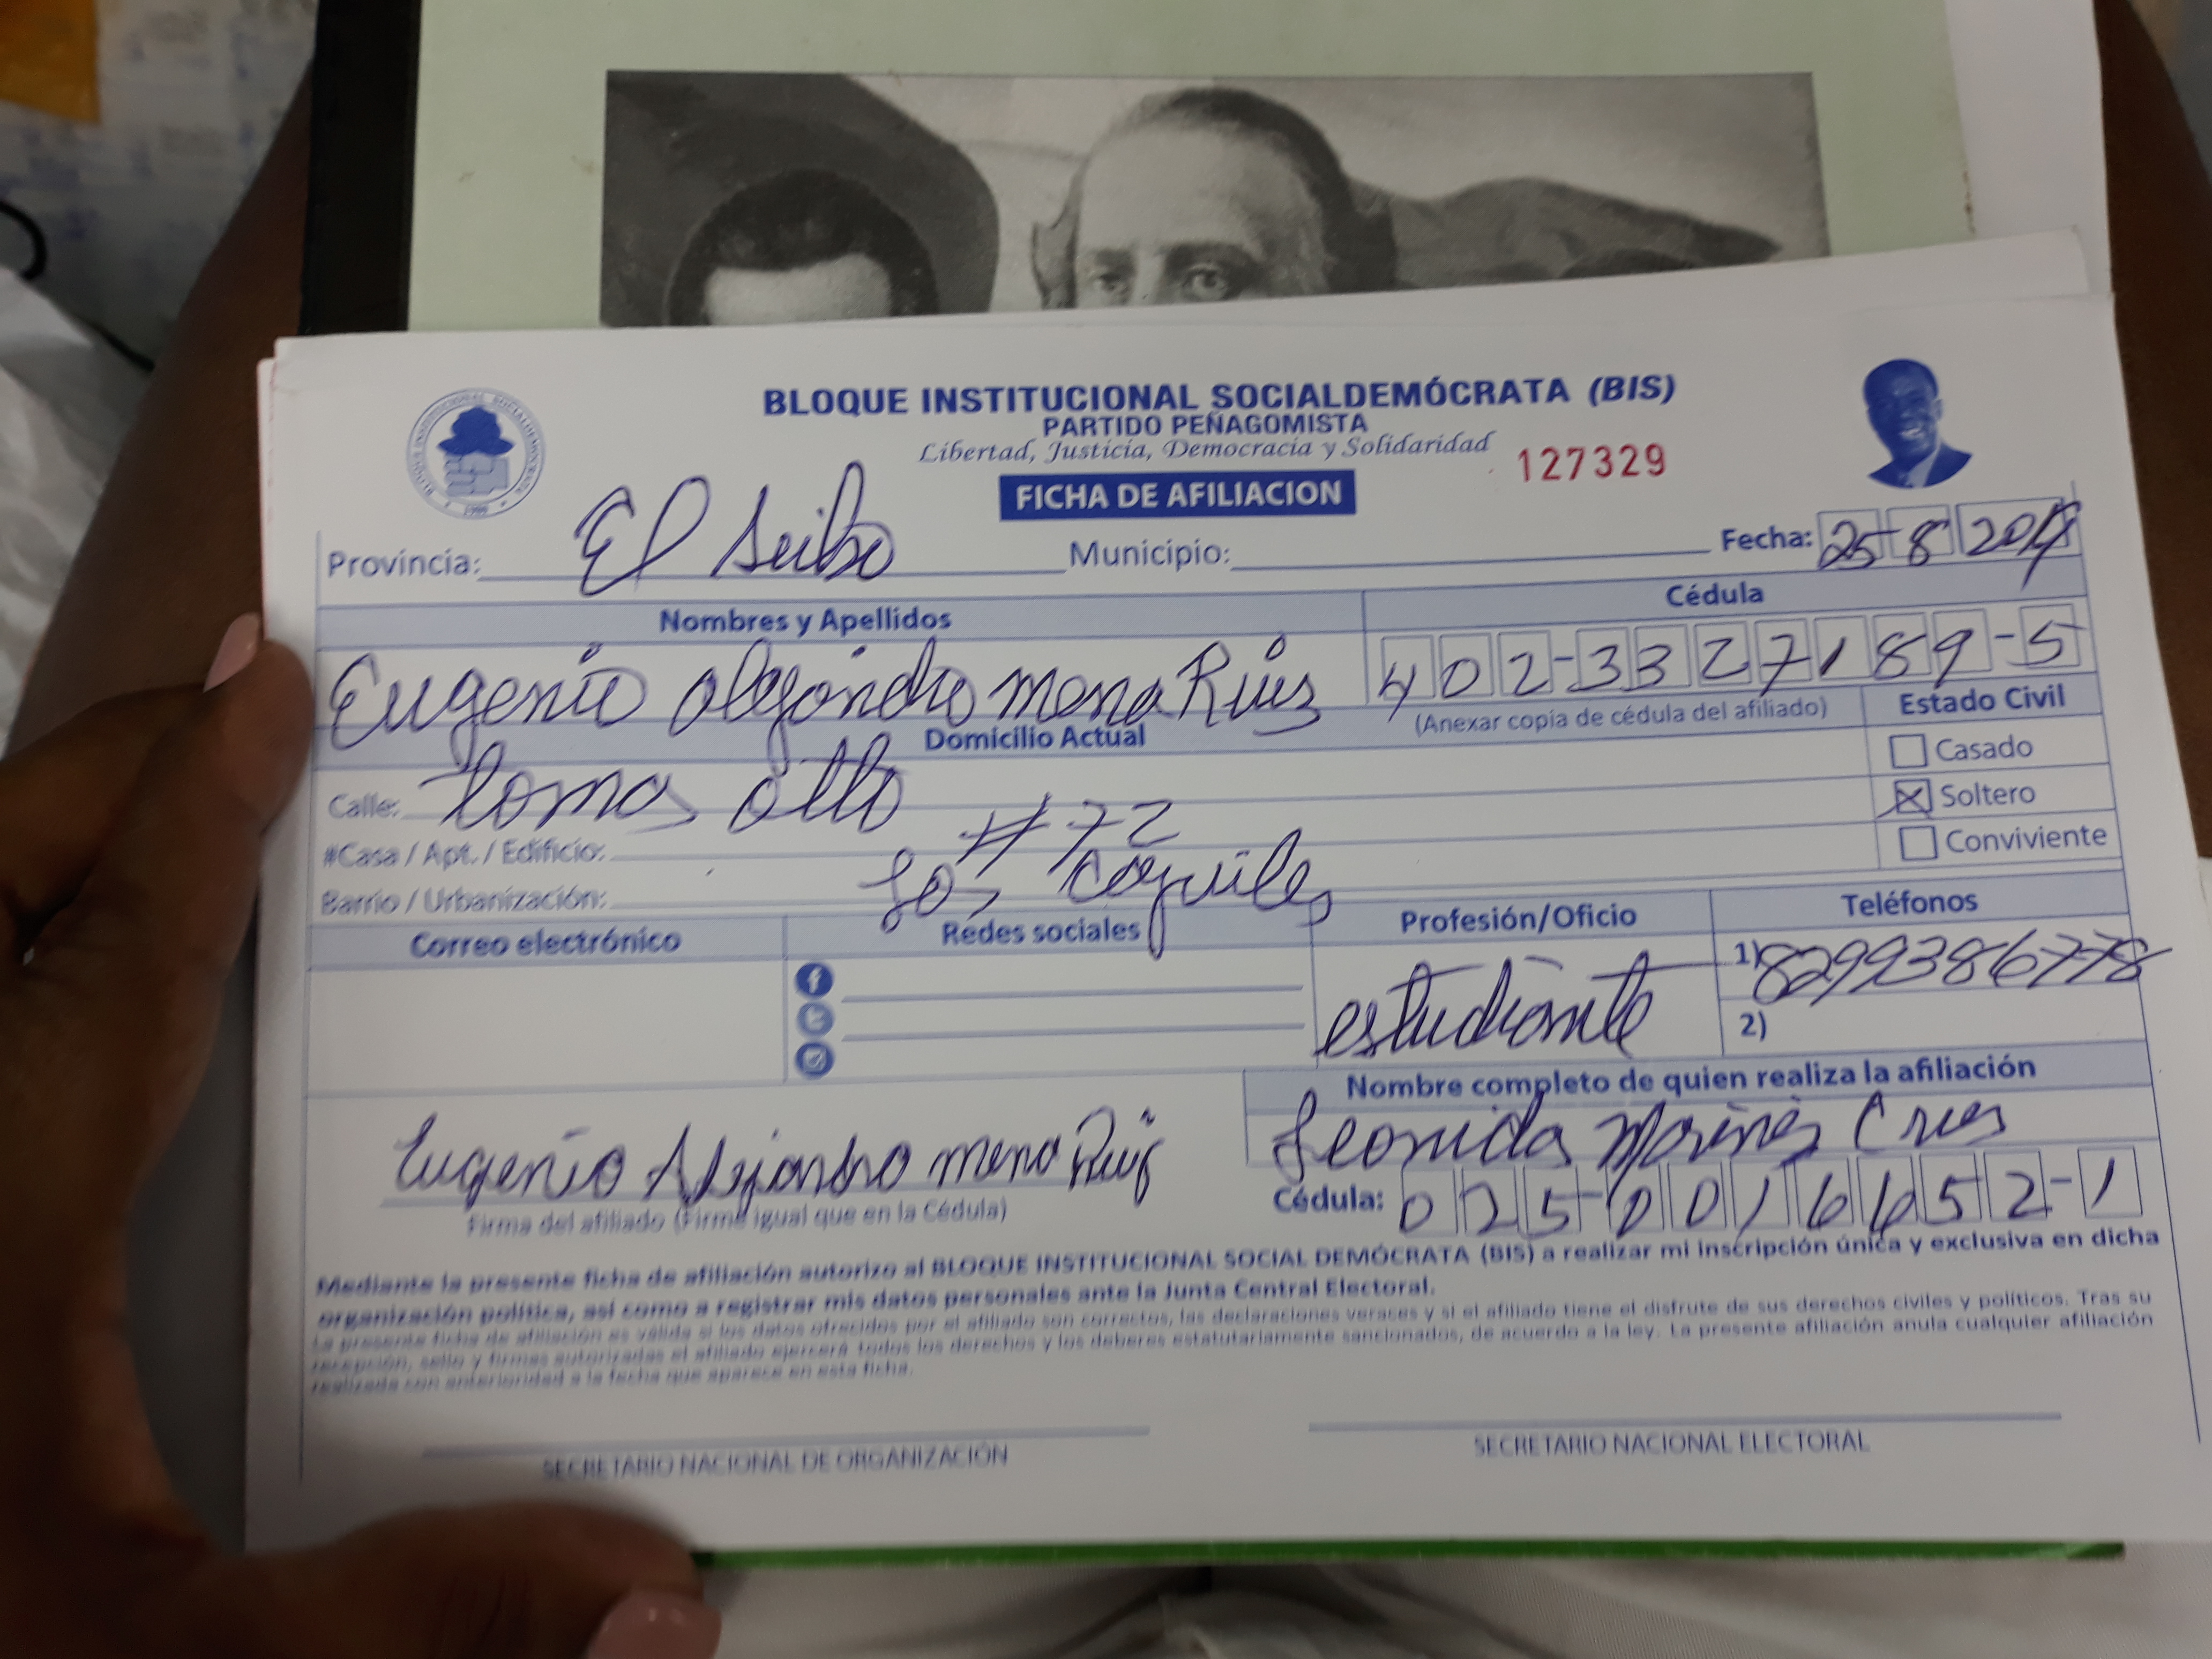 BLOQUE INSTITUCIONAL SOCIALDEMÓCRATA (BIS)
PARTIDO PEÑAGOMISTA
Libertad, Justicia, Democracia y Solidaridad
127329
FICHA DE AFILIACION
Provincia: El Seibo Municipio: Fecha: 25-8
Nombres y Apellidos Cédula
Eugenio Alejandro mena Ruiz 402-3327189-5
(Anexar copia de cédula del afiliado) Estado Civil
Domicilio Actual
Casado
Calle: Tomas
Soltero
#72
#Casa / Apt. / Edificio:
Conviviente
Barrio / Urbanización: Los
Correo electrónico Redes sociales Profesión/Oficio Teléfonos
estudiante 1) 8299386778
2)
Nombre completo de quien realiza la afiliación
Leonida
Eugenio Alejandro mena Ruiz
Cédula: 025-0016652-1
Firma del afiliado (Firme igual que en la Cédula)
Mediante la presente ficha de afiliación autorizo al BLOQUE INSTITUCIONAL SOCIAL DEMÓCRATA (BIS) a realizar mi inscripción única y exclusiva en dicha
organización política, así como a registrar mis datos personales ante la Junta Central Electoral.
La presente ficha de afiliación es válida si los datos ofrecidos por el afiliado son correctos, las declaraciones veraces y si el afiliado tiene el disfrute de sus derechos civiles y políticos. Tras su
recepción, sello y firmas autorizadas el afiliado ejercerá todos los derechos y los deberes estatutariamente sancionados, de acuerdo a la ley. La presente afiliación anula cualquier afiliación
realizada con anterioridad a la fecha que aparece en esta ficha.
SECRETARIO NACIONAL DE ORGANIZACIÓN SECRETARIO NACIONAL ELECTORAL